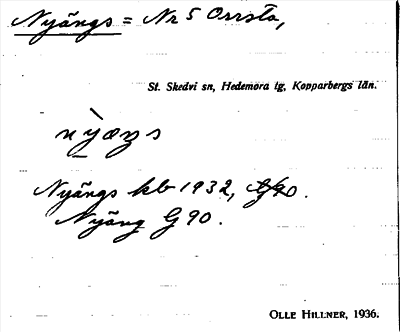 Nyängs = Nr 5 Orrsta,
St. Skedvi sn, Hedemora tg, Kopparbergs län.
nỳæŋs
Nyängs kb 1932, G90.
Nyäng G 90.
OLLE HILLNER, 1936.